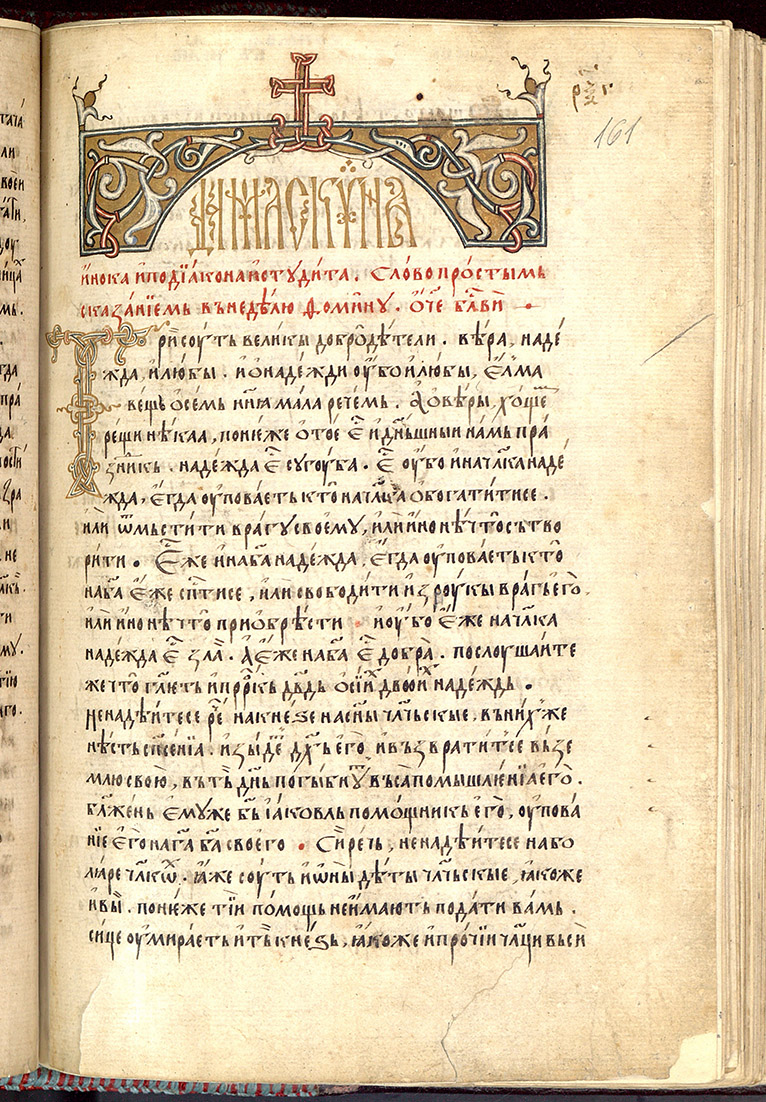 рѯг
161
Дамаскѷна
инока и подїакона и стѹдита . Слово простымь
сказанїемь въ недѣлю Ѳомину . Ѻч҃е бл҃ви
Три соуть великы добродѣтели . вѣра , наде
жда , и любы . и ѡ надежди оубо и любы , Елма
вещь ѡ семь
рещи нѣкаа , понеже ѡ тое Е҃ и дн҃ьшныи намь пра
зникь . надежда Е҃ сугоуба . Е҃ оубо и на чл҃ка наде
жда , егда оуповаеть кто на обогатитисе .
или ѿмьстити врагу своему , или ино нѣчто сътво
рити . Еже и на ба҃ надежда , егда оуповаеть кто
на ба҃ еже сп҃тисе , или свободити из роукы врагь его .
или ино нѣчто приобрѣсти и оубо еже на чл҃ка
надежда е҃ зла . А еже на ба҃ е҃ добра . послоушаите
же что гл҃ть и прр҃кь дв҃дь ѡ сїих двоих надеждь .
Не надѣитесе ре҃ на кнезе на сн҃ы чл҃чьскые , въ них же
нѣсть сп҃сенїа . изыде дх҃ь его и възвратитсе въ зе
млю свою , въ тъ дн҃ь погыбнут въса помышленїа его .
Бл҃жень емуже б҃ь іаковль помощникь его , оупова
нїе его на га҃ ба҃ своего . Сирѣчь , не надѣитесе на бо
лꙗре чл҃кѡ . ꙗже соуть и ѡны дѣты чл҃чьскые , ꙗкоже
и вы . понеже тїи помощь не имають подати вамь .
сице оумираеть и тъ кнезь , ꙗкоже и прочїи чл҃ци въси